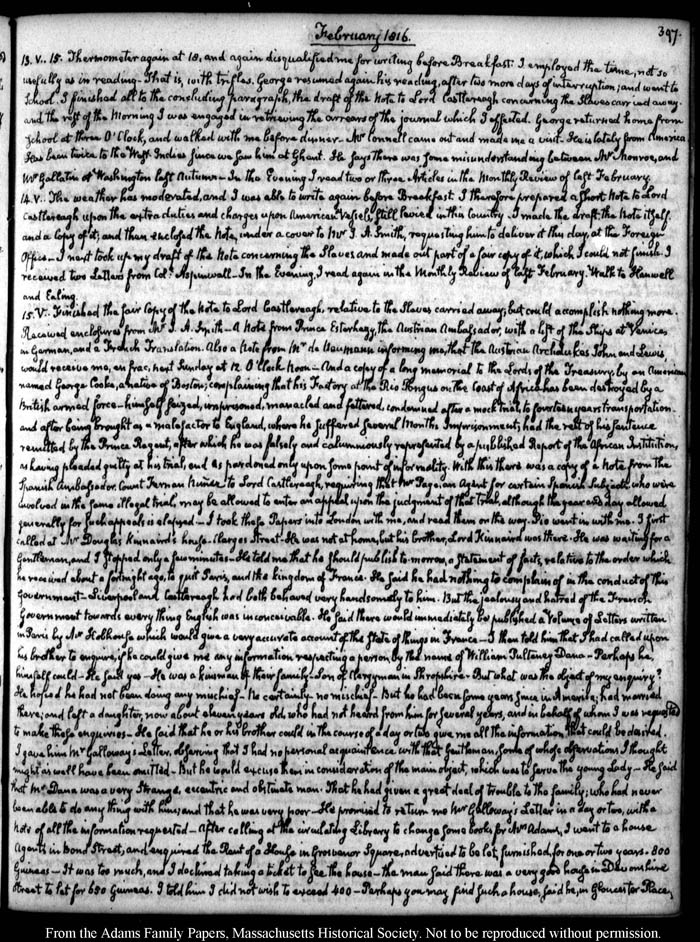 February 1816.
397.
13. V.. 15. Thermometer again at 18, and again disqualified me for writing before Breakfast. I employed the time, not so
usefully as in reading—That is, with trifles. George resumed again his reading, after two more days of interruption; and went to
School. I finished all to the concluding paragraph, the draft of the Note to Lord Castlereagh concerning the Slaves carried away.
and the rest of the Morning I was engaged in retrieving the arrears of the journal which I effected. George returned home from
School at three O'Clock, and walked with me before dinner. Mr Connell came out and made me a visit. He is lately from America
Has been twice to the West Indies since we saw him at Ghent. He says there was some misunderstanding between Mr Monroe, and
Mr Gallatin at Washington last Autumn—In the Evening I read two or three Articles in the Monthly Review of last February.
14. V.. The weather has moderated, and I was able to write again before Breakfast. I therefore prepared a short Note to Lord
Castlereagh upon the extra duties and charges upon American Vessels still levied in this Country. I made the draft, the Note itself
and a Copy of it; and then enclosed the Note, under a cover to Mr J. A. Smith, requesting him to deliver it this day, at the Foreign
Office—I next took up my draft of the Note concerning the Slaves and made out part of a fair copy of it, which I could not finish. I
received two Letters from Coll. Aspinwall—In the Evening, I read again in the Monthly Review of last February. Walk to Hanwell
and Ealing.
15. V.. Finished the fair Copy of the Note to Lord Castlereagh, relative to the Slaves carried away; but could accomplish nothing more.
Received enclosures from Mr J. A. Smith—A Note from Prince Esterhazy, the Austrian Ambassador, with a list of the Ships at Venice,
in German, and a French Translation. Also a Note from Mr de Neumann informing me, that the Austrian Archdukes John and Lewis,
would receive me, en frac, next Sunday at 12 O'Clock Noon—And a copy of a long memorial to the Lords of the Treasury, by an American
named George Cooke, a native of Boston; complaining that his Factory at the Rio Pongus on the Coast of Africa has been destroyed by a
British armed force—himself seized, imprisoned, manacled and fettered, condemned after a mock trial, to fourteen years transportation.
and after being brought as a malefactor to England, where he suffered several Months Imprisonment; had the rest of his sentence
remitted by the Prince Regent, after which he was falsely and calumniously represented by a published Report of the African Institution,
as having pleaded guilty at his trial, and as pardoned only upon some point of informality. With this there was a copy of a Note from the
Spanish Ambassador, Count Fernan Nuñez to Lord Castlereagh, requiring that Mr Page, an Agent for certain Spanish Subjects, who were
involved in the same illegal trial, may be allowed to enter an appeal upon the judgment of that trial, although the year and day allowed
generally for such appeals is elapsed—I took these Papers into London with me, and read them on the way. went in with me. I first
called at Mr Douglas Kinnaird's house. Clarges Street. He was not at home, but his brother, Lord Kinnaird was there. He was waiting for a
Gentleman, and I stopped only a few minutes—He told me that he should publish to-morrow, a statement of facts, relative to the order which
he received about a fortnight ago, to quit Paris, and the kingdom of France. He said he had nothing to complain of in the conduct of this
Government—Liverpool and Castlereagh had both behaved very handsomely to him. But the jealousy and hatred of the French
Government towards every thing English was inconceivable. He said there would immediately be published a Volume of Letters written
in Paris by Mr Hobhouse which would give a very accurate account of the State of things in France—I then told him that I had called upon
his brother to enquire, if he could give me any information respecting a person by the name of William Pulteney Dana—Perhaps he,
himself could—He said yes—He was a kinsman of their family—Son of a Clergyman in Shropshire—But what was the object of my enquiry?
He hoped he had not been doing any mischief—No certainly no mischief—But he had been some years since in America; had married
there; and left a daughter, now about eleven years old, who had not heard from him for several years, and in behalf of whom I was requested
to make these enquiries—He said that he or his brother could in the course of a day or two give me all the information that could be desired.
I gave him Mr Galloway's Letter, observing that I had no personal acquaintance with that Gentleman, some of whose observations I thought
might as well have been omitted—But he would excuse them in consideration of the main object, which was to serve the young Lady—He said
that Mr Dana was a very strange, eccentric and obstinate man. That he had given a great deal of trouble to the family; who had never
been able to do any thing with him; and that he was very poor—He promised to return me Mr Galloway's Letter in a day or two, with a
Note of all the information requested—After calling at the circulating Library to change some books for Mrs Adams, I went to a house
Agents in Bond Street, and enquired the Rent of a House in Grosvenor Square, advertised to be let, furnished, for one or two years—800
Guineas—It was too much, and I declined taking a ticket to see the house—the man said there was a very good house in Devonshire
Street to let for 650 Guineas. I told him I did not wish to exceed 400—Perhaps you may find such a house, said he, in Gloucester Place,
From the Adams Family Papers, Massachusetts Historical Society. Not to be reproduced without permission.